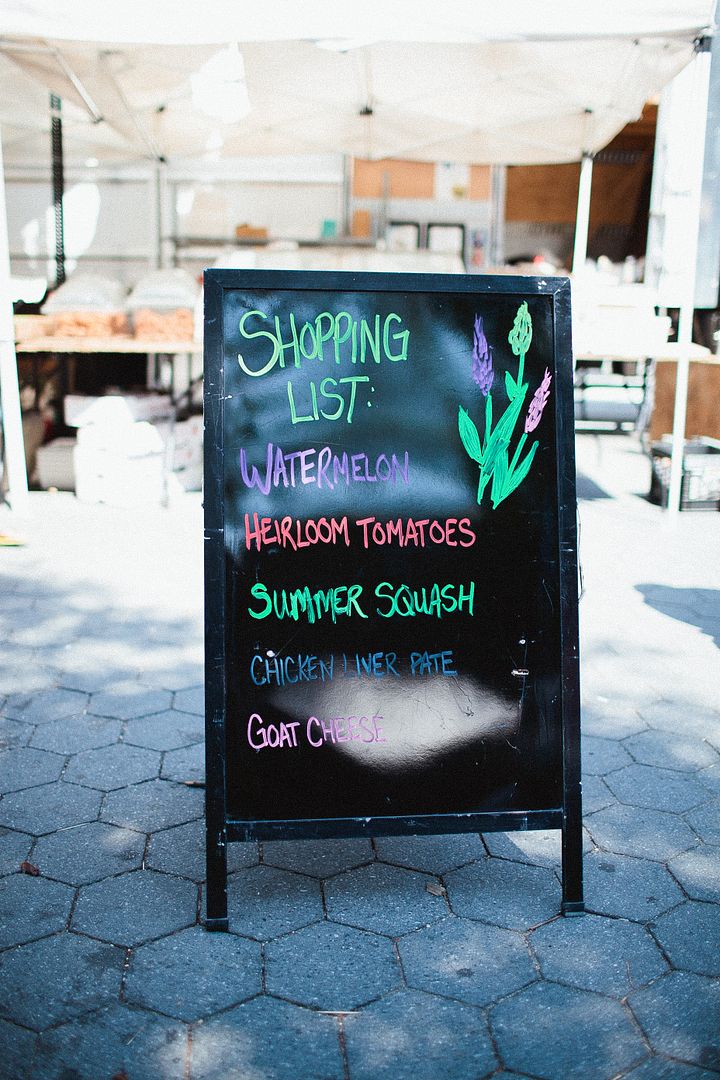 SHOPPING
LIST:
WATERMELON
HEIRLOOM TOMATOES
SUMMER SQUASH
CHICKEN LIVER PATE
GOAT CHEESE